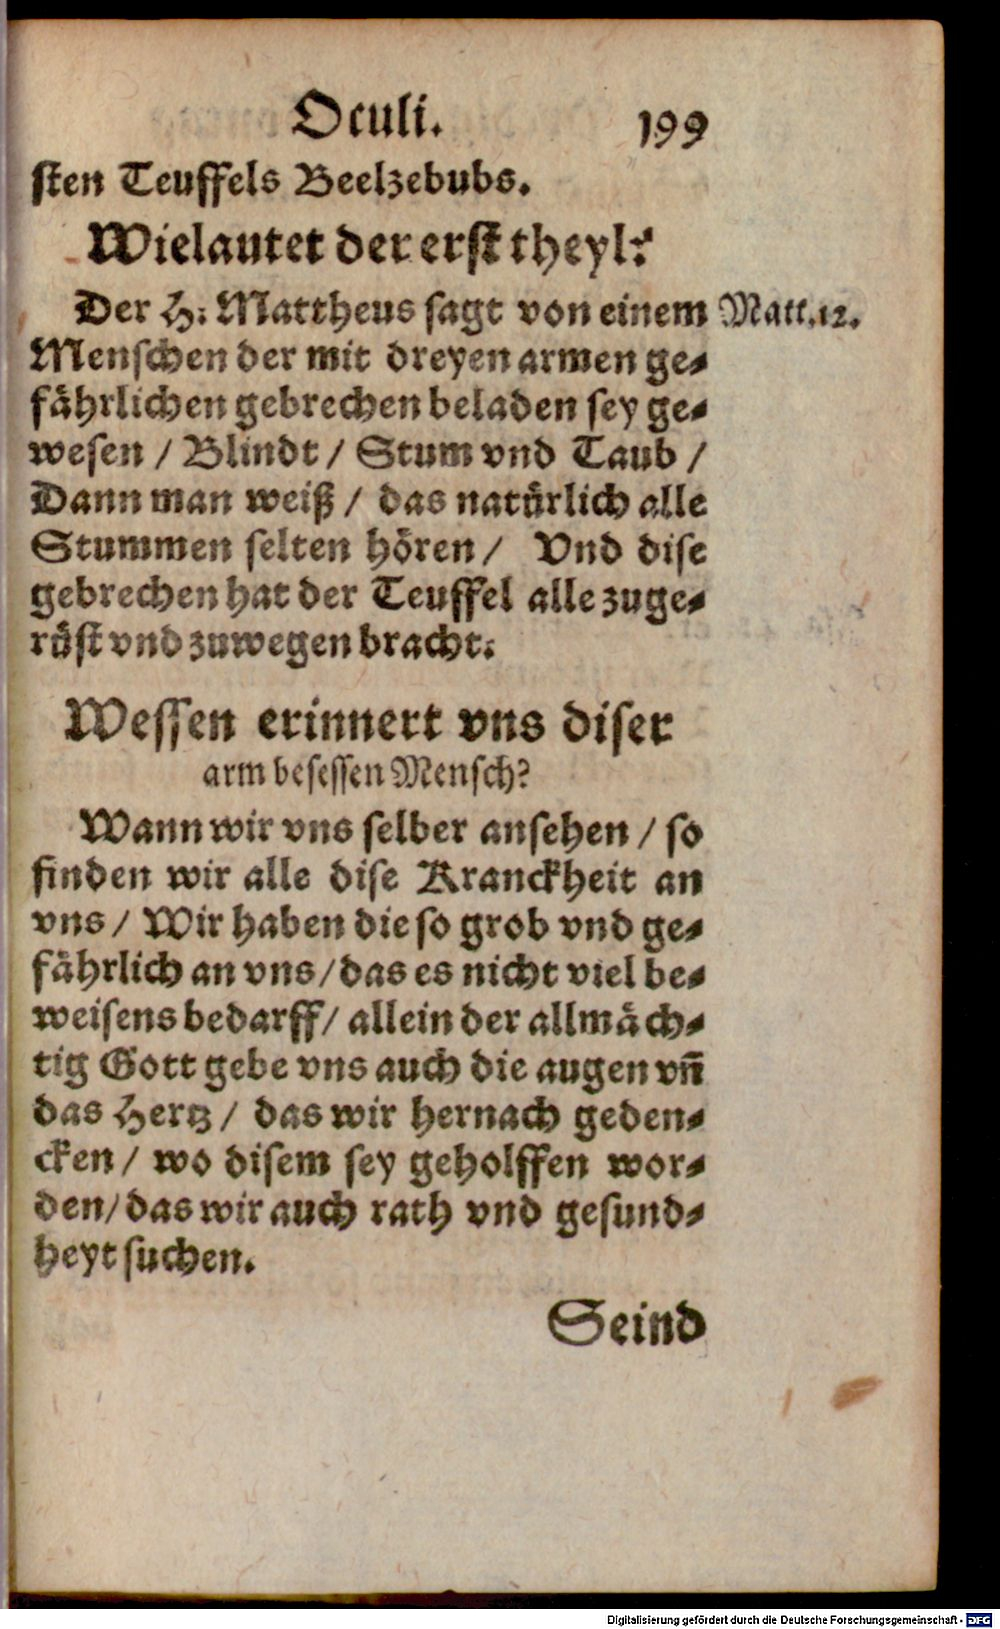 Oculi. 199
sten Teuffels Beelzebubs.
Wie lautet der erst theyl?
Der H. Mattheus sagt von einem Matt. 12.
Menschen der mit dreyen armen ge-
fährlichen gebrechen beladen sey ge-
wesen / Blindt / Stum vnd Taub /
Dann man weiß / das natürlich alle
Stummen selten hören / Vnd dise
gebrechen hat der Teuffel alle zuge-
rüst vnd zuwegen bracht.
Wessen erinnert vns diser
arm besessen Mensch?
Wann wir vns selber ansehen / so
finden wir alle dise Kranckheit an
vns / Wir haben die so grob vnd ge-
fährlich an vns / das es nicht viel be-
weisens bedarff / allein der allmäch-
tig Gott gebe vns auch die augen vñ
das Hertz / das wir hernach geden-
cken / wo disem sey geholffen wor-
den / das wir auch rath vnd gesund-
heyt suchen.
Seind
Digitalisierung gefördert durch die Deutsche Forschungsgemeinschaft - DFG